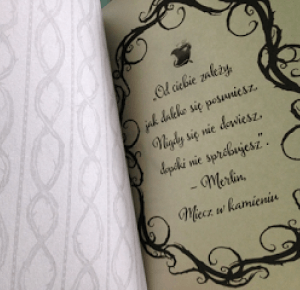 „Od ciebie zależy,
jak daleko się posuniesz.
Nigdy się nie dowiesz,
dopóki nie spróbujesz”.
– Merlin,
Miecz w kamieniu